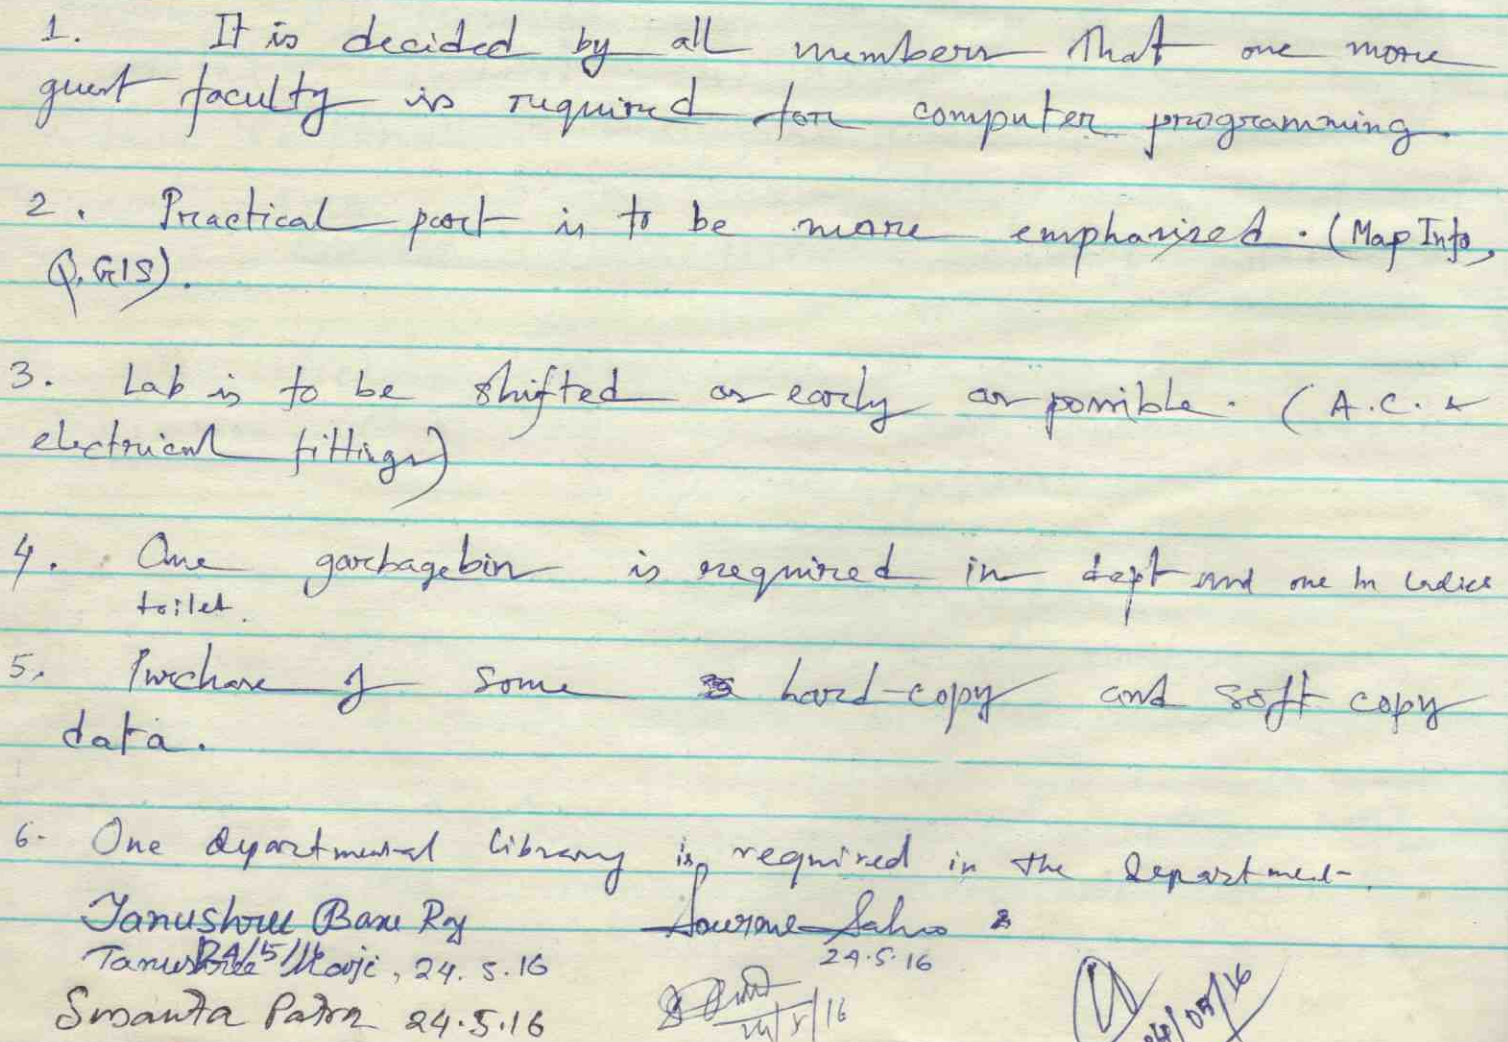 1. It is decided by all members that one more
guest faculty is required for computer programming.
2. Practical part is to be more emphasized. (Map Info,
Q.GIS).
3. Lab is to be shifted as early as possible. (A.C. &
electrical fittings)
4. One garbagebin is required in dept and one in ladies
toilet.
5. Purchase of some hard-copy and soft copy
data.
6- One departmental library is required in the department.
Tanushree Basu Roy
24/5/16
Tanushree Maji, 24.5.16
Susanta Patra 24.5.16
Sahoo
24.5.16
24/5/16
24/05/16